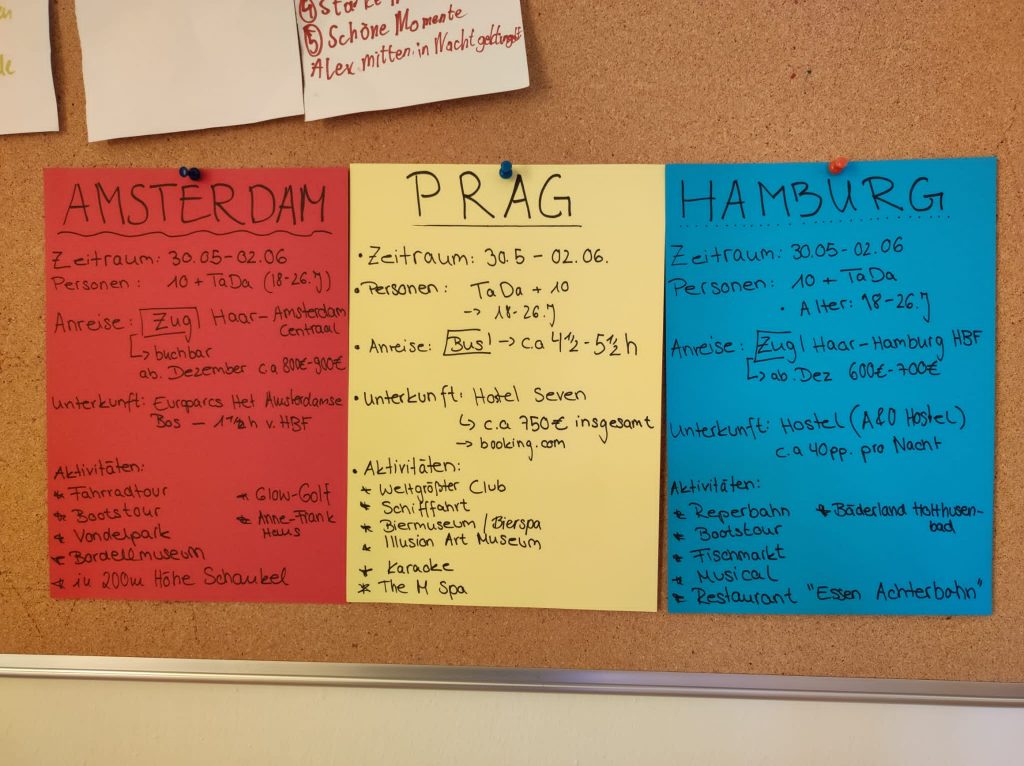 ④ Stärke
⑤ Schöne Momente
Alex mitten in Nacht
AMSTERDAM
Zeitraum: 30.05-02.06
Personen: 10 + TaDa (18-26.J)
Anreise: Zug Haar-Amsterdam
Centraal
↳ buchbar
ab. Dezember c.a 800€-900€
Unterkunft: Europarcs Het Amsterdamse
Bos - 1 1/2 h v. HBF
Aktivitäten:
* Fahrradtour
* Bootstour
* Vondelpark
* Bordellmuseum
* in 200m Höhe Schaukel
* Glow-Golf
* Anne-Frank
Haus
PRAG
• Zeitraum: 30.5 - 02.06.
• Personen: TaDa + 10
-> 18-26.J
• Anreise: Bus! -> c.a 4 1/2 - 5 1/2 h
• Unterkunft: Hostel Seven
↳ c.a 750€ insgesamt
-> booking.com
• Aktivitäten:
* Weltgrößter Club
* Schifffahrt
* Biermuseum / Bierspa
* Illusion Art Museum
* Karaoke
* The M Spa
HAMBURG
Zeitraum: 30.05-02.06
Personen: 10 + TaDa
• Alter: 18-26.J
Anreise: Zug! Haar-Hamburg HBF
↳ ab. Dez 600€-700€
Unterkunft: Hostel (A&O Hostel)
c.a 40pp. pro Nacht
Aktivitäten:
* Reperbahn
* Bootstour
* Fischmarkt
* Musical
* Restaurant "Essen Achterbahn"
* Bäderland Holthusen-
bad